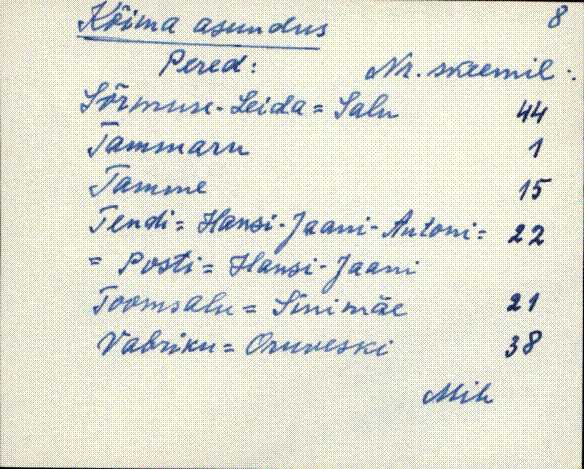 Kõima asundus 8
Pered: Nr. skeemil:
Sõrmuse-Leida = Salu 44
Tammaru 1
Tamme 15
Tendi = Hansi-Jaani-Antoni = 22
= Posti = Hansi-Jaani
Toomsalu = Sinimäe 21
Vabriku = Oruveski 38
Mih